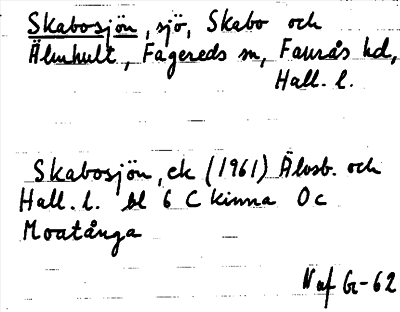 Skabosjön, sjö, Skabo och
Älmhult, Fagereds sn, Faurås hd,
Hall. l.
Skabosjön, ek (1961) Älvsb. och
Hall. l. bl 6 C Kinna Oc
Moatånga
Naf G-62